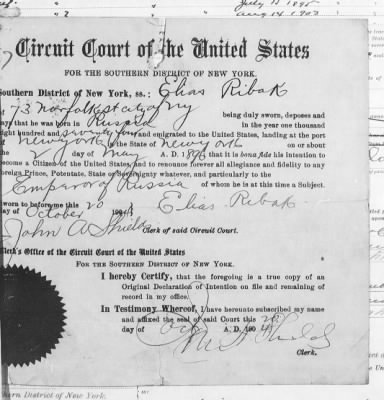 July 13 1898
Aug 14 1903
Circuit Court of the United States
FOR THE SOUTHERN DISTRICT OF NEW YORK.
Southern District of New York, ss.: Elias Ribak
73 Norfolk st city of NY being duly sworn, deposes and
says that he was born in Russia in the year one thousand
eight hundred and seventy four and emigrated to the United States, landing at the port
of New York in the State of New York on or about
the day of May A. D. 189 that it is bona fide his intention to
become a Citizen of the United States, and to renounce forever all allegiance and fidelity to any
Foreign Prince, Potentate, State or Sovereignty whatever, and particularly to the
Emperor of Russia of whom he is at this time a Subject.
Sworn to before me this 20
day of October Elias Ribak
John A Shields
Clerk of said Circuit Court.
Clerk's Office of the Circuit Court of the United States
FOR THE SOUTHERN DISTRICT OF NEW YORK.
I hereby Certify, that the foregoing is a true copy of an
Original Declaration of Intention on file and remaining of
record in my office.
In Testimony Whereof, I have hereunto subscribed my name
and affixed the seal of said Court this 20
day of Oct A. D. 190
John A Shields
Clerk.
hern District of New York.